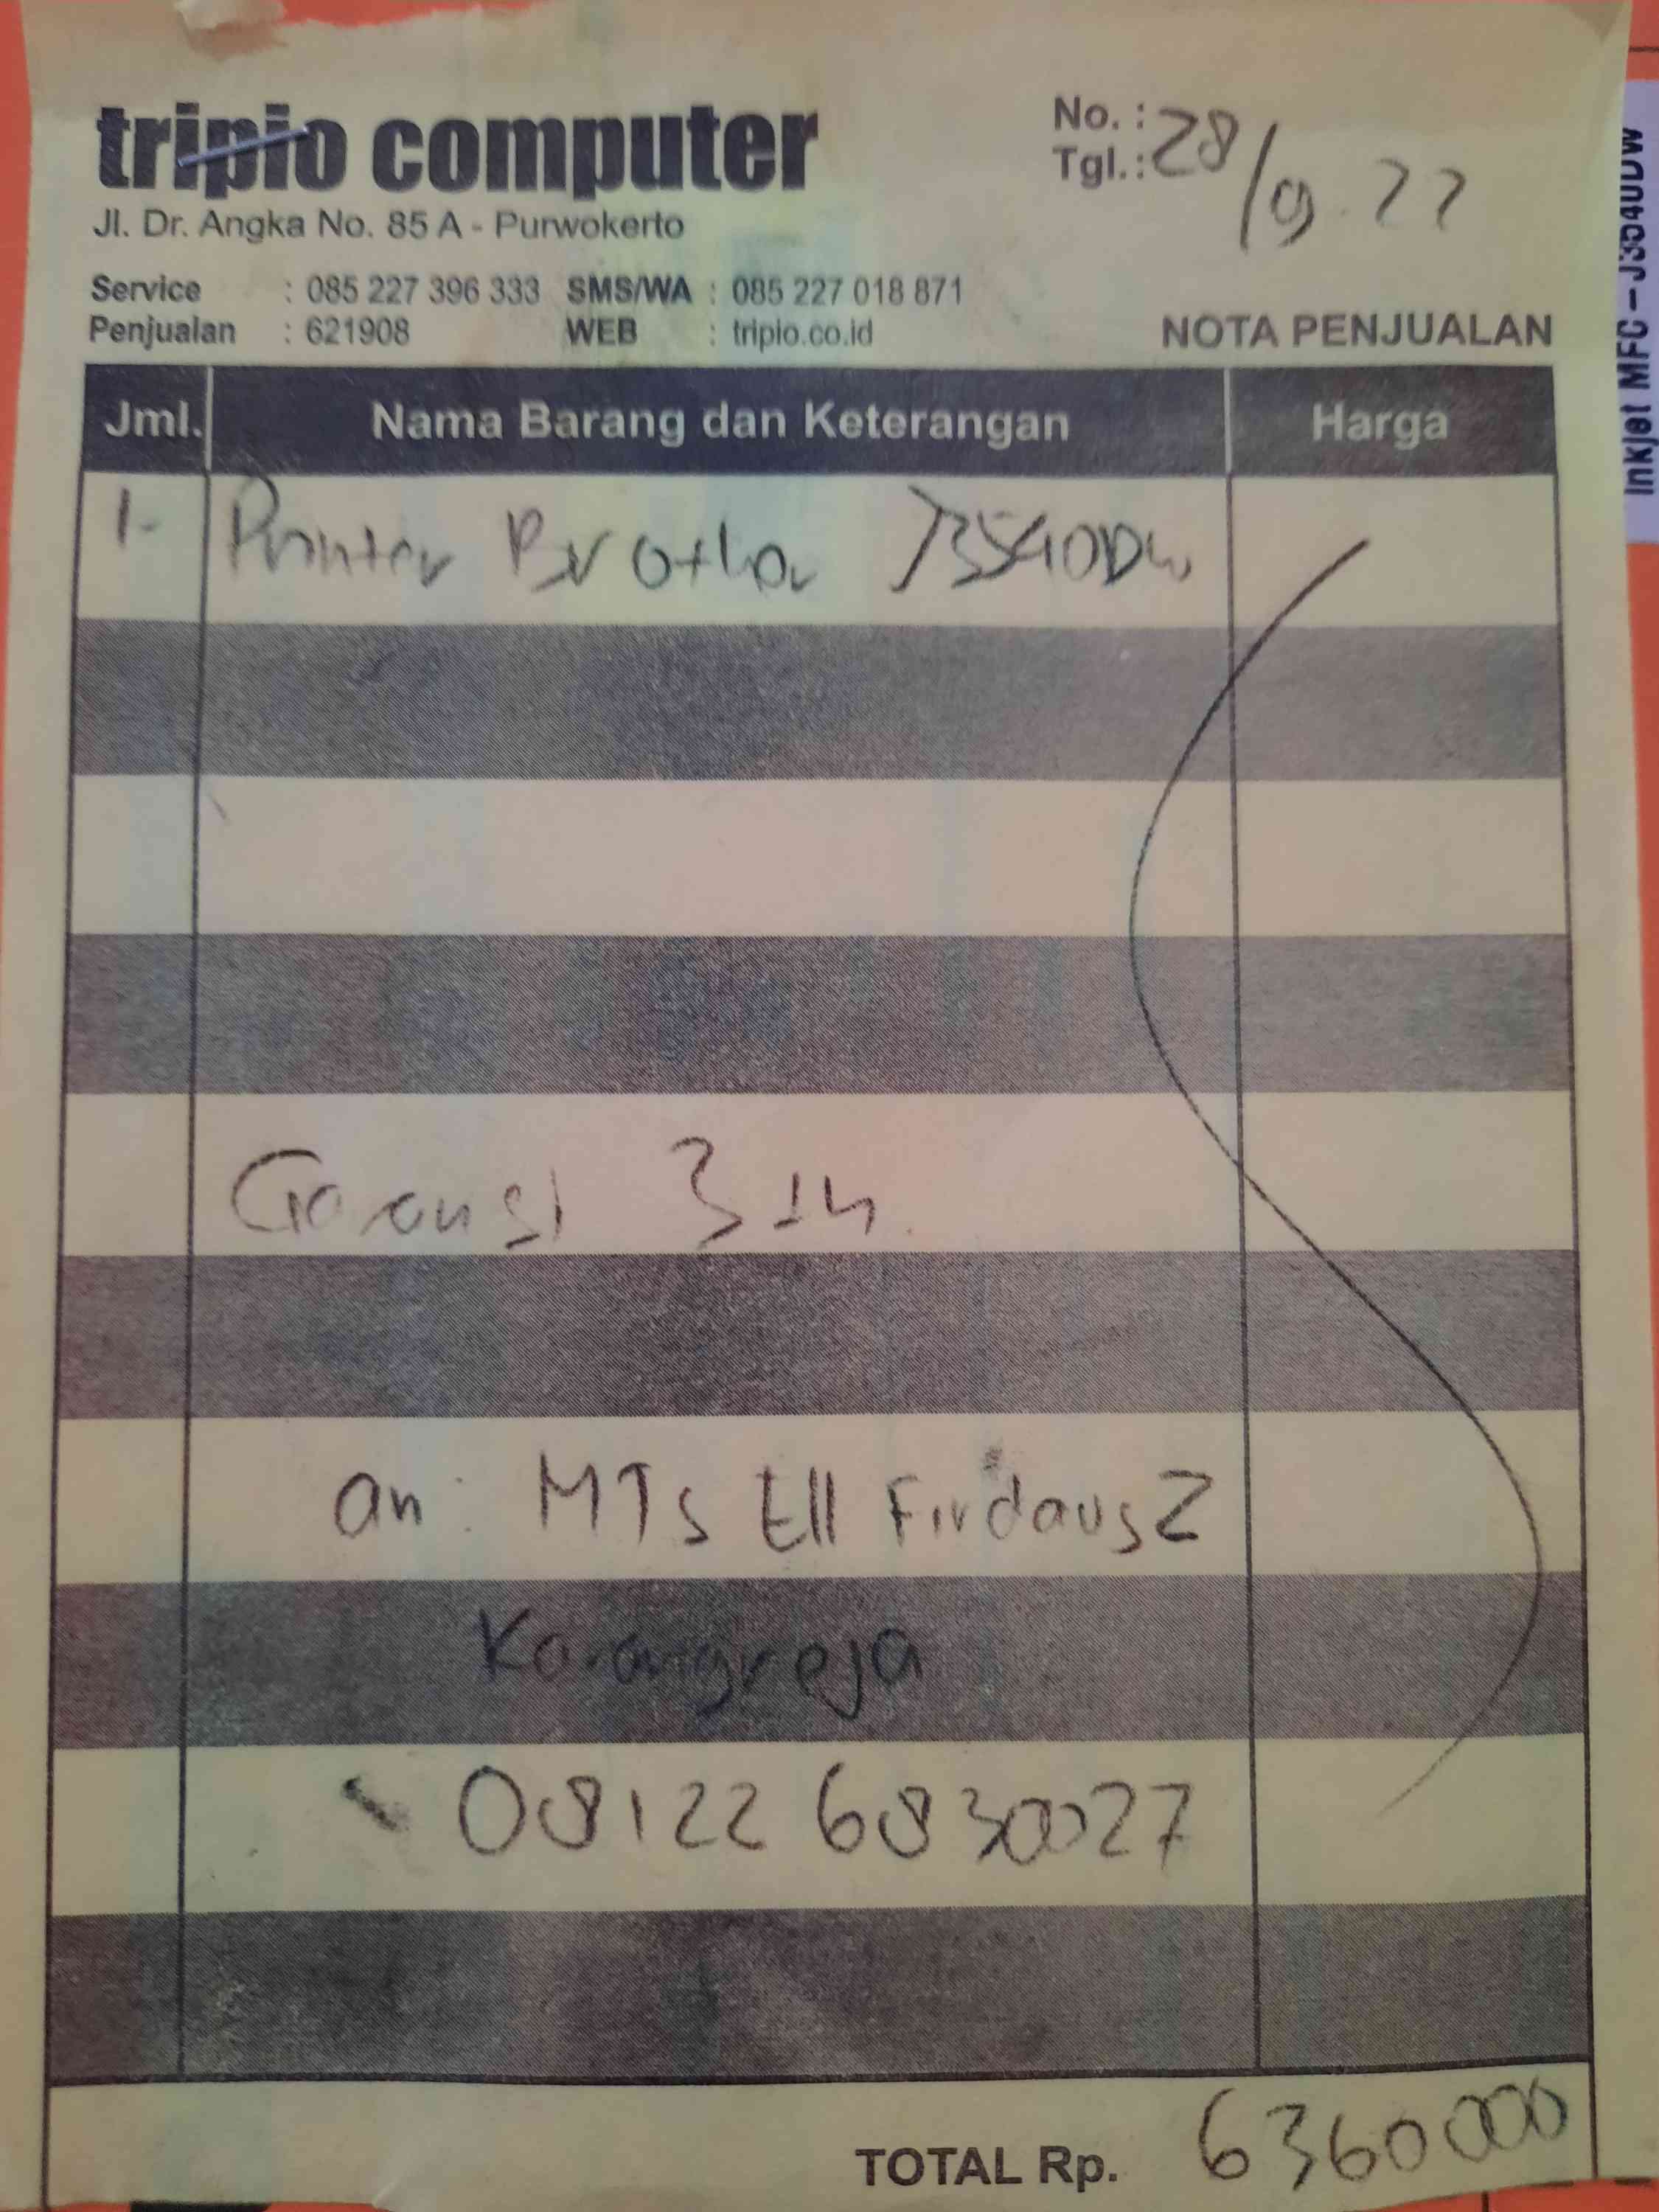 tripio computer
Jl. Dr. Angka No. 85 A - Purwokerto
No. :
Tgl.: 28/9 22
Service : 085 227 396 333 SMS/WA : 085 227 018 871
Penjualan : 621908 WEB : tripio.co.id
NOTA PENJUALAN
Jml. Nama Barang dan Keterangan Harga
1- Printer Brother J3540DW
Garansi 3 th.
an : MTs Ell Firdaus 2
Karangreja
08122 6830027
TOTAL Rp. 6360000
Inkjet MFC-J3540DW